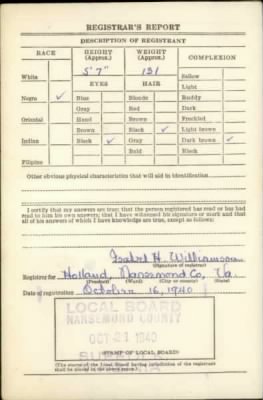 REGISTRAR'S REPORT
DESCRIPTION OF REGISTRANT
RACE HEIGHT (Approx.) WEIGHT (Approx.) COMPLEXION
White 5' 7" 131 Sallow
EYES HAIR Light
Negro ✓ Blue Blonde Ruddy
Gray Red Dark
Oriental Hazel Brown Freckled
Brown Black ✓ Light brown
Indian Black ✓ Gray Dark brown ✓
Bald Black
Filipino
Other obvious physical characteristics that will aid in identification
I certify that my answers are true; that the person registered has read or has had
read to him his own answers; that I have witnessed his signature or mark and that
all of his answers of which I have knowledge are true, except as follows:
Isabel H. Williamson
(Signature of registrar)
Registrar for Holland, Nansemond Co, Va.
(Precinct) (Ward) (City or county) (State)
Date of registration October 16, 1940
LOCAL BOARD
NANSEMOND COUNTY
OCT 21 1940
(STAMP OF LOCAL BOARD)
(The stamp of the Local Board having jurisdiction of the registrant
shall be placed in the above space.)